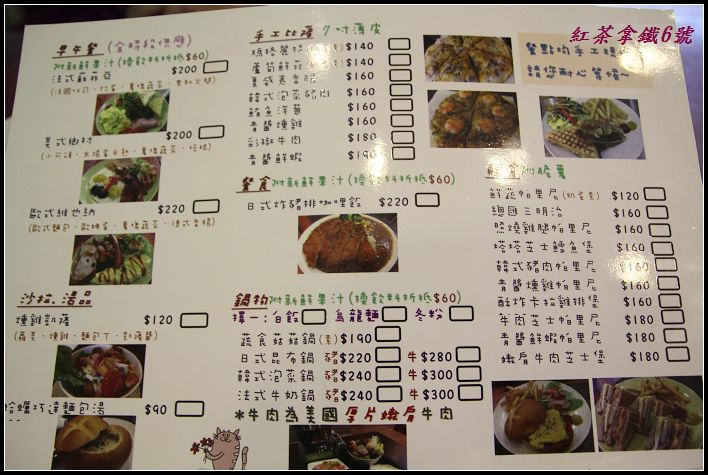 紅茶拿鐵6號
早午餐 (全時段供應)
附新鮮果汁(換飲料折抵$60)
法式菲菲亞 $200
美式鄉村 $200
歐式維也納 $220
沙拉.湯品
燻雞凱薩 $120
(蘿美、燻雞、麵包丁、凱薩醬)
蛤蠣巧達麵包湯 $90
手工比薩 7吋薄皮
瑪格麗特 $140
蘆筍鮮菇 $140
夏威夷香腸 $160
韓式泡菜豬肉 $160
鮪魚洋蔥 $160
青醬燻雞 $160
彩椒牛肉 $180
青醬鮮蝦 $190
餐食 附新鮮果汁(換飲料折抵$60)
日式炸豬排咖哩飯 $220
鍋物 附新鮮果汁(換飲料折抵$60)
擇一:白飯 烏龍麵 冬粉
蔬食菇菇鍋(素) $190
日式昆布鍋 豬$220 牛$280
韓式泡菜鍋 豬$240 牛$300
法式牛奶鍋 豬$240 牛$300
*牛肉為美國厚片嫩肩牛肉
餐點均手工現
請您耐心等候~
輕食附哈薯
鮮蔬帕里尼(奶蛋素) $120
總匯三明治 $160
照燒雞腿帕里尼 $160
塔塔芝士鱈魚堡 $160
韓式豬肉帕里尼 $160
青醬燻雞帕里尼 $160
酥炸卡拉雞排堡 $160
牛肉芝士帕里尼 $180
青醬鮮蝦帕里尼 $180
嫩肩牛肉芝士堡 $180